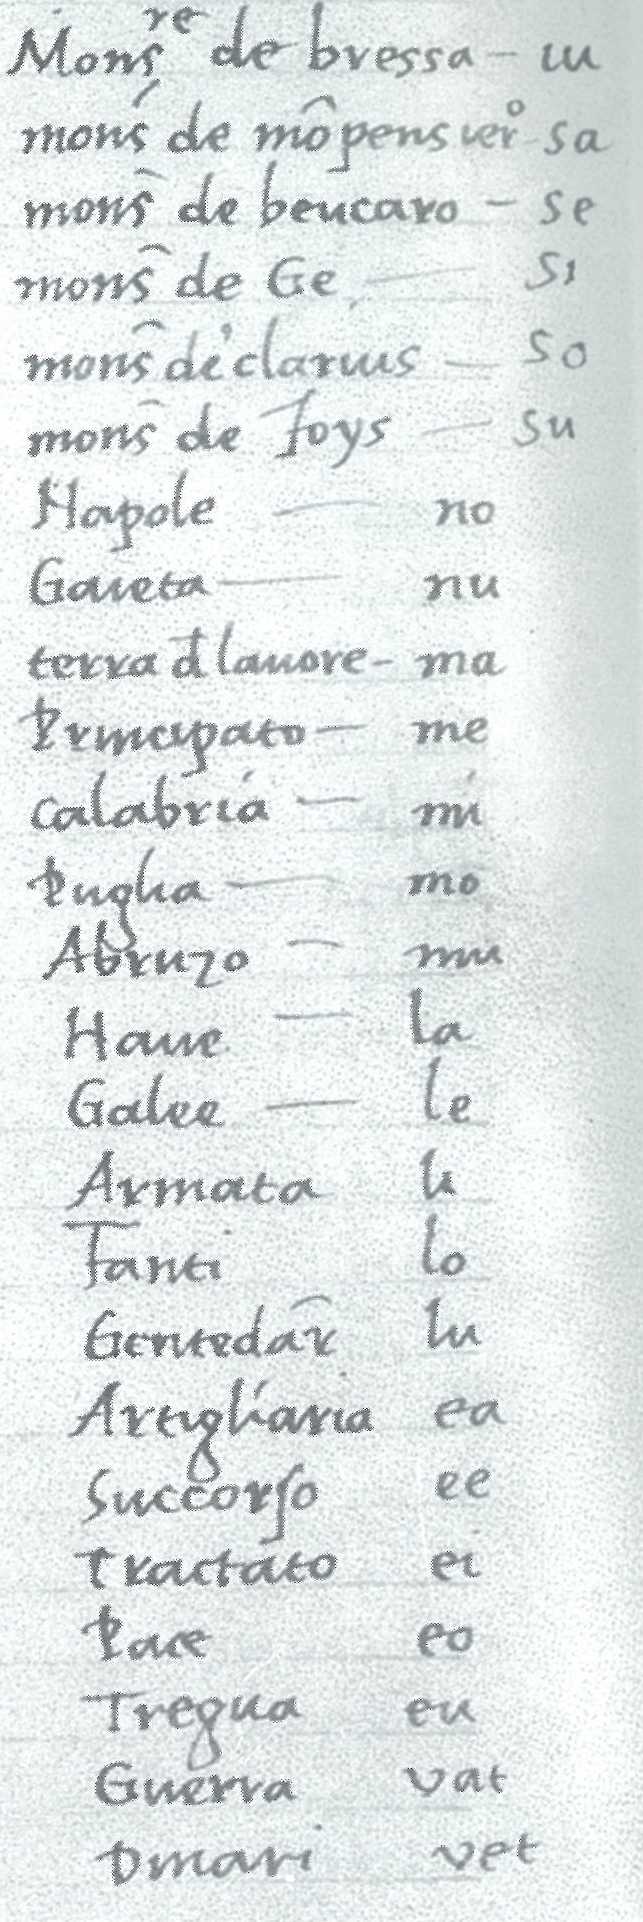 Mons^re de bressa – iu
mons̃ de mõpensier^o sa
mons̃ de beucaro – se
mons̃ de Ge — si
mons̃ de clarius — so
mons̃ de Foys — su
Napole — no
Gaueta — nu
terra đ lauore – ma
Principato — me
calabria — mi
Puglia — mo
Abruzo — mu
Naue — la
Galee — le
Armata li
Fanti lo
Gentedar̃ lu
Artigliaria ea
Succorso ee
tractato ei
Pace eo
Tregua eu
Guerra vat
Dinari vet